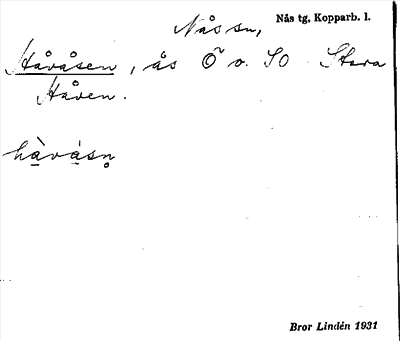 Nås sn,
Nås tg, Kopparb. l.
Håvåsen, ås Ö o. SO Stora
Håven.
hàvásn̥
Bror Lindén 1931